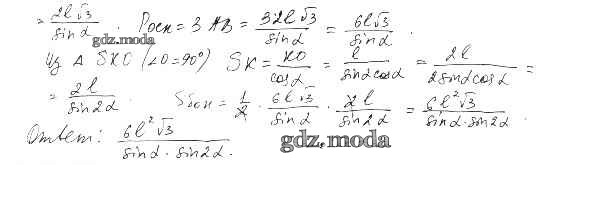 = 2l√3 / sin α . Pосн = 3 AB = 32l√3 / sin α = 6l√3 / sin α .
gdz.moda
Из Δ SKO (∠O=90°) SK = KO / cos α = l / sin α cos α = 2l / 2 sin α cos α =
= 2l / sin 2α . Sбок = 1/2 · 6l√3 / sin α · 2l / sin 2α = 6l²√3 / sin α · sin 2α .
Ответ: 6l²√3 / sin α · sin 2α.
gdz.moda